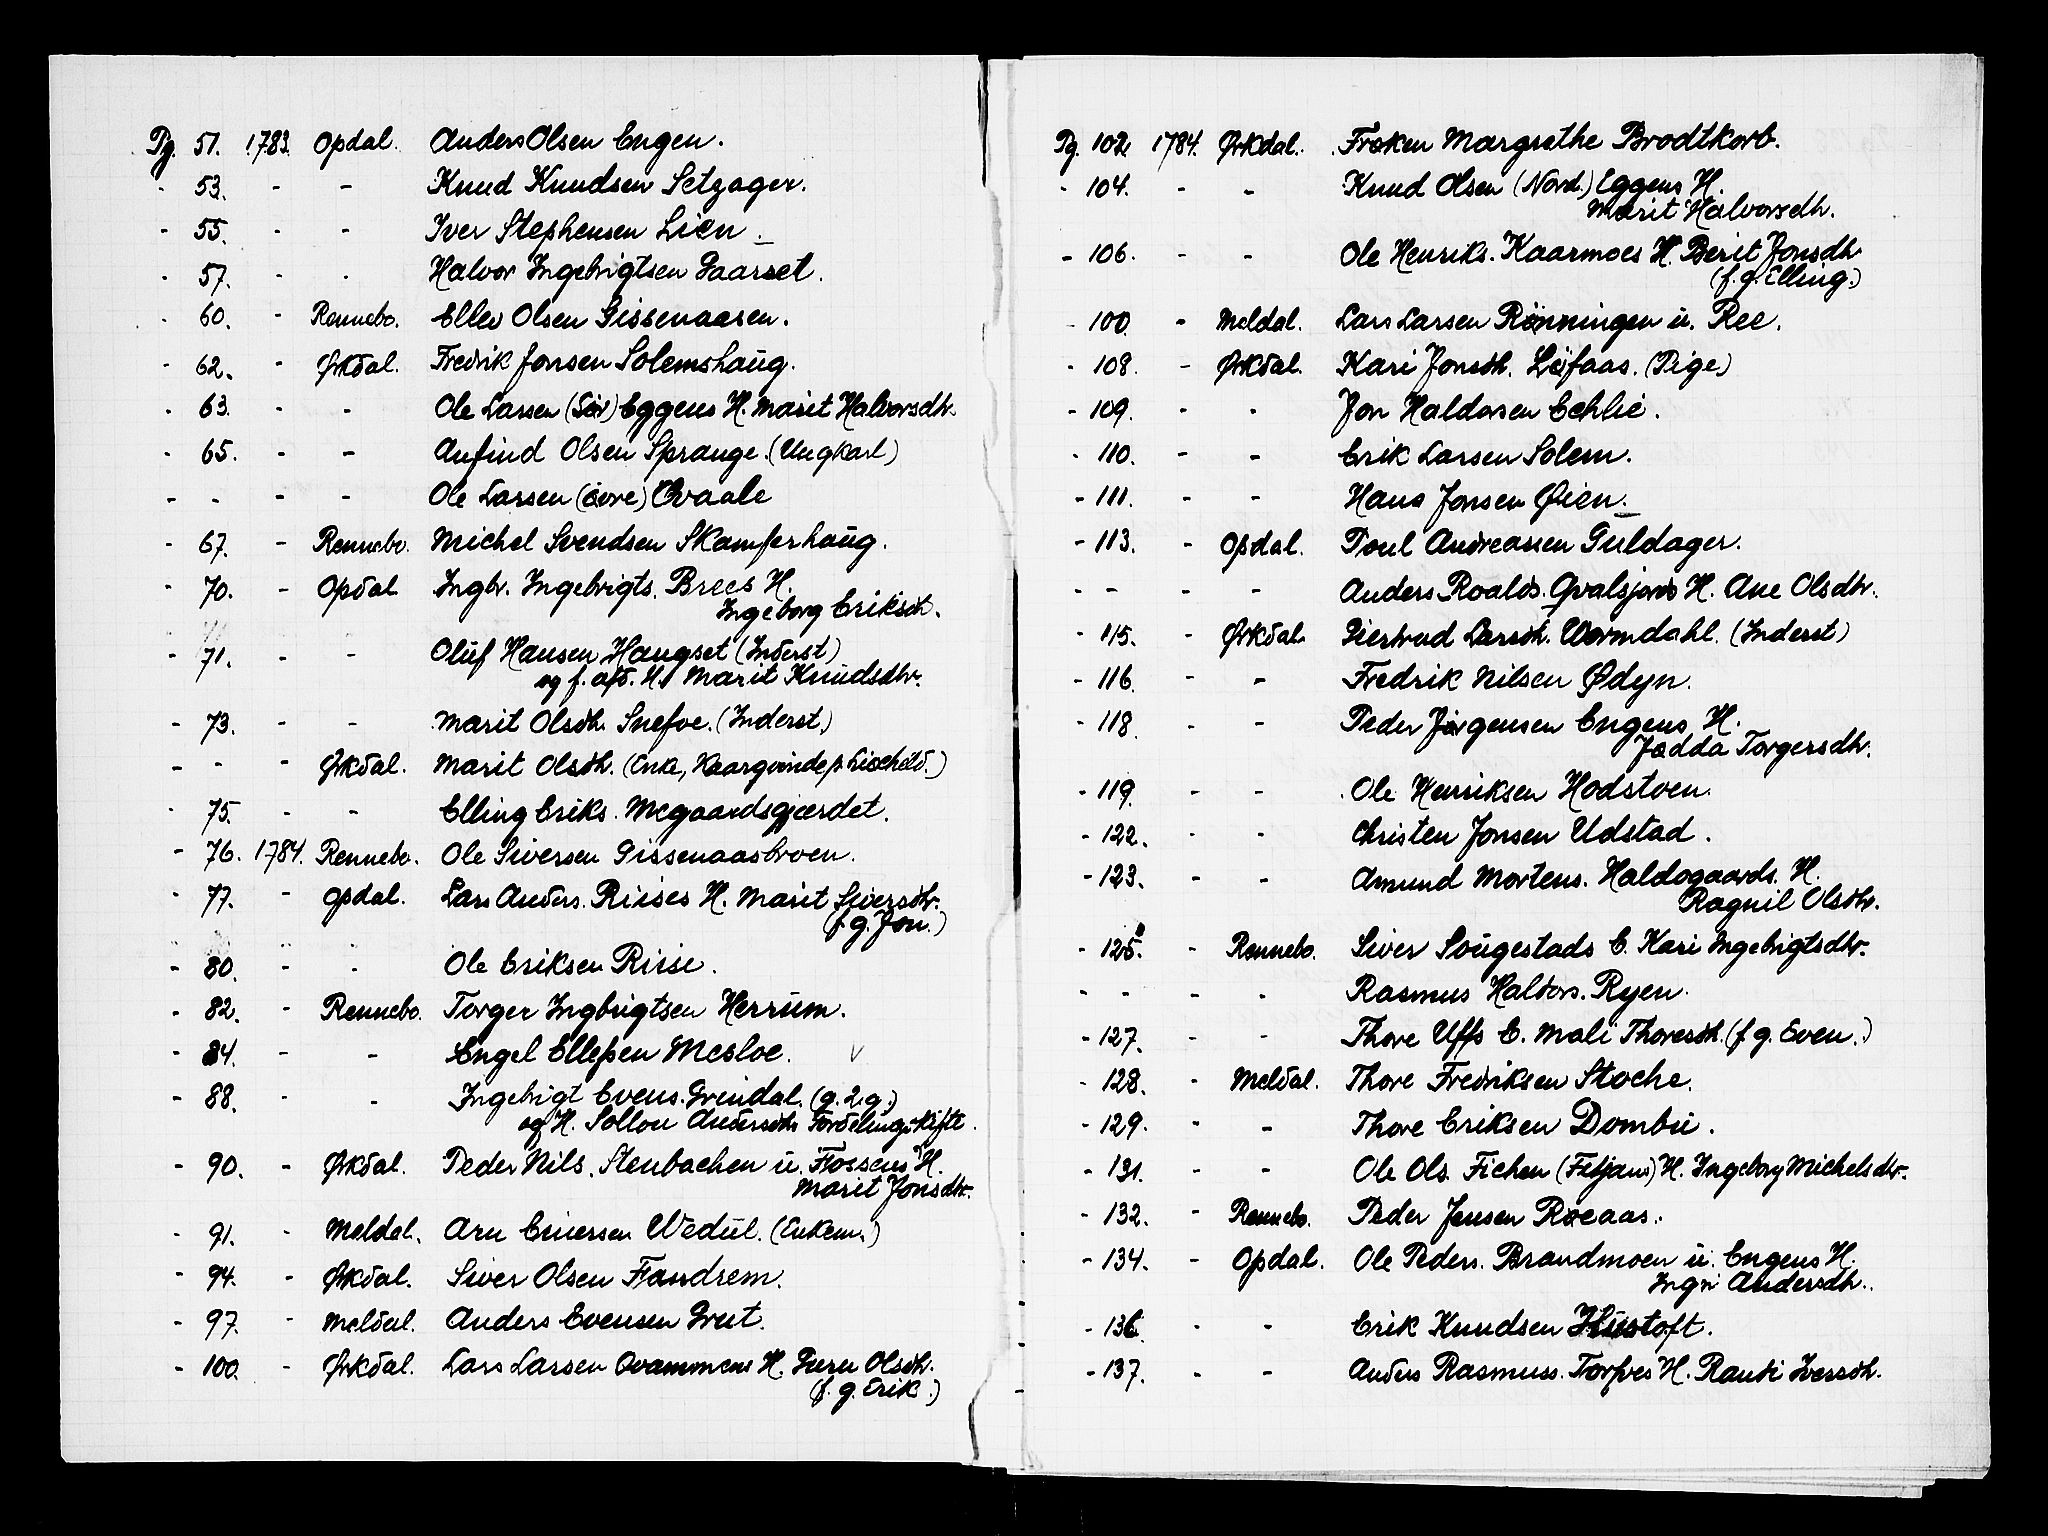 Pg. 51. 1783. Opdal. Anders Olsen Engen.
- 53. - - Knud Knudsen Setzager.
- 55. - - Iver Stephensen Lien.
- 57. - - Halvor Ingebrigtsen Gaarset.
- 60. - Rennebo. Ellev Olsen Gissenaasen.
- 62. - Ørkdal. Fredrik Jonsen Solemshaug.
- 63. - - Ole Larsen (Sör) Eggens H. Marit Halvorsdtr.
- 65. - - Anfind Olsen Sprauge. (Ungkarl)
- - - - Ole Larsen (övre) Qvaale
- 67. - Rennebo. Michel Svendsen Skamferhaug.
- 70. - Opdal Ingbr. Ingebrigts. Brees H.
Ingeborg Eriksdt.
- 71. - - Oluf Hansen Haugset (Inderst)
og f. afd. H. Marit Knudsdtr.
- 73. - - Marit Olsdtr. Snefve. (Inderst.)
- - - Ørkdal. Marit Olsdtr. (Enke, Kaargvinde p.
- 75. - - Elling Eriks. Megaardsgjærdet.
- 76. 1784. Rennebo. Ole Siversen Gissenaasbroen.
- 77. - Opdal. Lars Anders. Riises H. Marit Siversdtr.
(f. g. Jon.)
- 80. - - Ole Eriksen Riise.
- 82. - Rennebo. Torger Ingbrigtsen Herrum.
- 84. - - Engel Ellefsen Mesloe. v
- 88. - - Ingebrigt Evens. Grindal. (g. 2. g.)
og H. Sollou Andersdtr. Fordelingskifte.
- 90. - Ørkdal. Peder Nils. Stenbachen u. Fossens H.
Marit Jonsdtr.
- 91. - Meldal. Arn Enversen Wedul. (Enkem.)
- 94. - Ørkdal. Siver Olsen Fandrem.
- 97. - Meldal. Anders Evensen Grut.
- 100. - Ørkdal. Lars Larsen Qvammens H. Guru Olsdtr.
(f. g. Erik.)
Pg. 102. 1784. Ørkdal. Frøken Margrethe Brodtkorb.
- 104. - - Knud Olsen (Nord.) Eggens H.
Marit Halvorsdtr.
- 106. - - Ole Henriks. Kaarmoes H. Berit Jonsdtr.
(f. g. Elling.)
- 100. - Meldal. Lars Larsen Rönningen u. Ree.
- 108. - Ørkdal. Kari Jonsdtr. Löfaas. (Pige)
- 109. - - Jon Haldorsen Echlie.
- 110. - - Erik Larsen Solem.
- 111. - - Hans Jonsen Øien.
- 113. - Opdal. Poul Andreasen Guldager.
- - - - Anders Roalds. Qvalsjords H. Ane Olsdtr.
- 115. - Ørkdal. Giertrud Larsdtr. Wormdahl. (Inderst)
- 116. - - Fredrik Nilsen Ødyn.
- 118. - - Peder Jörgensen Engens H.
Jødda Torgersdtr.
- 119. - - Ole Henriksen Hodstoen.
- 122. - - Christen Jonsen Udstad.
- 123. - - Amund Mortens. Haldogaards. H.
Ragnil Olsdtr.
- 125. - Rennebo. Siver Sougestads E. Kari Ingebrigtsdtr.
- - - - Rasmus Haldors. Ryen.
- 127. - - Thore Uffs E. Mali Thoresdt. (f. g. Even.)
- 128. - Meldal. Thore Fredriksen Stoche.
- 129. - - Thore Eriksen Dombu.
- 131. - - Ole Ols. Fichen (Fetjans) H. Ingeborg Michelsdtr.
- 132. - Rennebo. Peder Jensen Röeaas.
- 134. - Opdal. Ole Peders. Brandmoen u. Engens H.
Ingri Andersdtr.
- 136. - - Erik Knudsen Hustoft.
- 137. - - Anders Rasmuss. Torfves H. Randi Iversdtr.